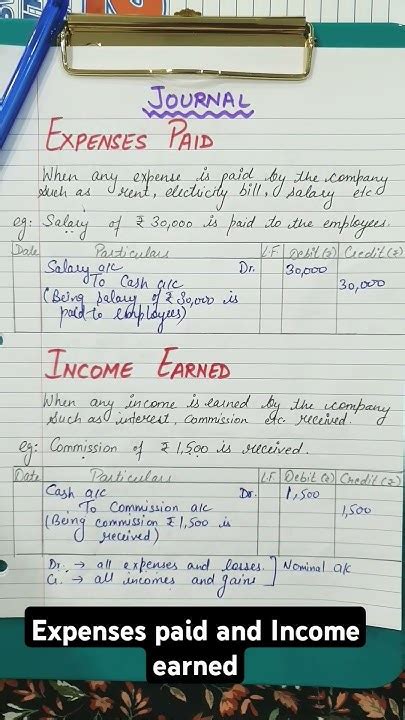 JOURNAL
EXPENSES PAID
When any expense is paid by the company
such as rent, electricity bill, salary etc
eg: Salary of ₹ 30,000 is paid to the employees.
Date Particulars L.F. Debit(₹) Credit(₹)
Salary a/c Dr. 30,000
To Cash a/c 30,000
(Being salary of ₹ 30,000 is
paid to employees)
INCOME EARNED
When any income is earned by the company
such as interest, commission etc. received.
eg: Commission of ₹ 1,500 is received.
Date Particulars L.F. Debit(₹) Credit(₹)
Cash a/c Dr. 1,500
To Commission a/c 1,500
(Being commission ₹ 1,500 is
received)
Dr. → all expenses and losses. ] Nominal a/c
Cr. → all incomes and gains
Expenses paid and Income
earned